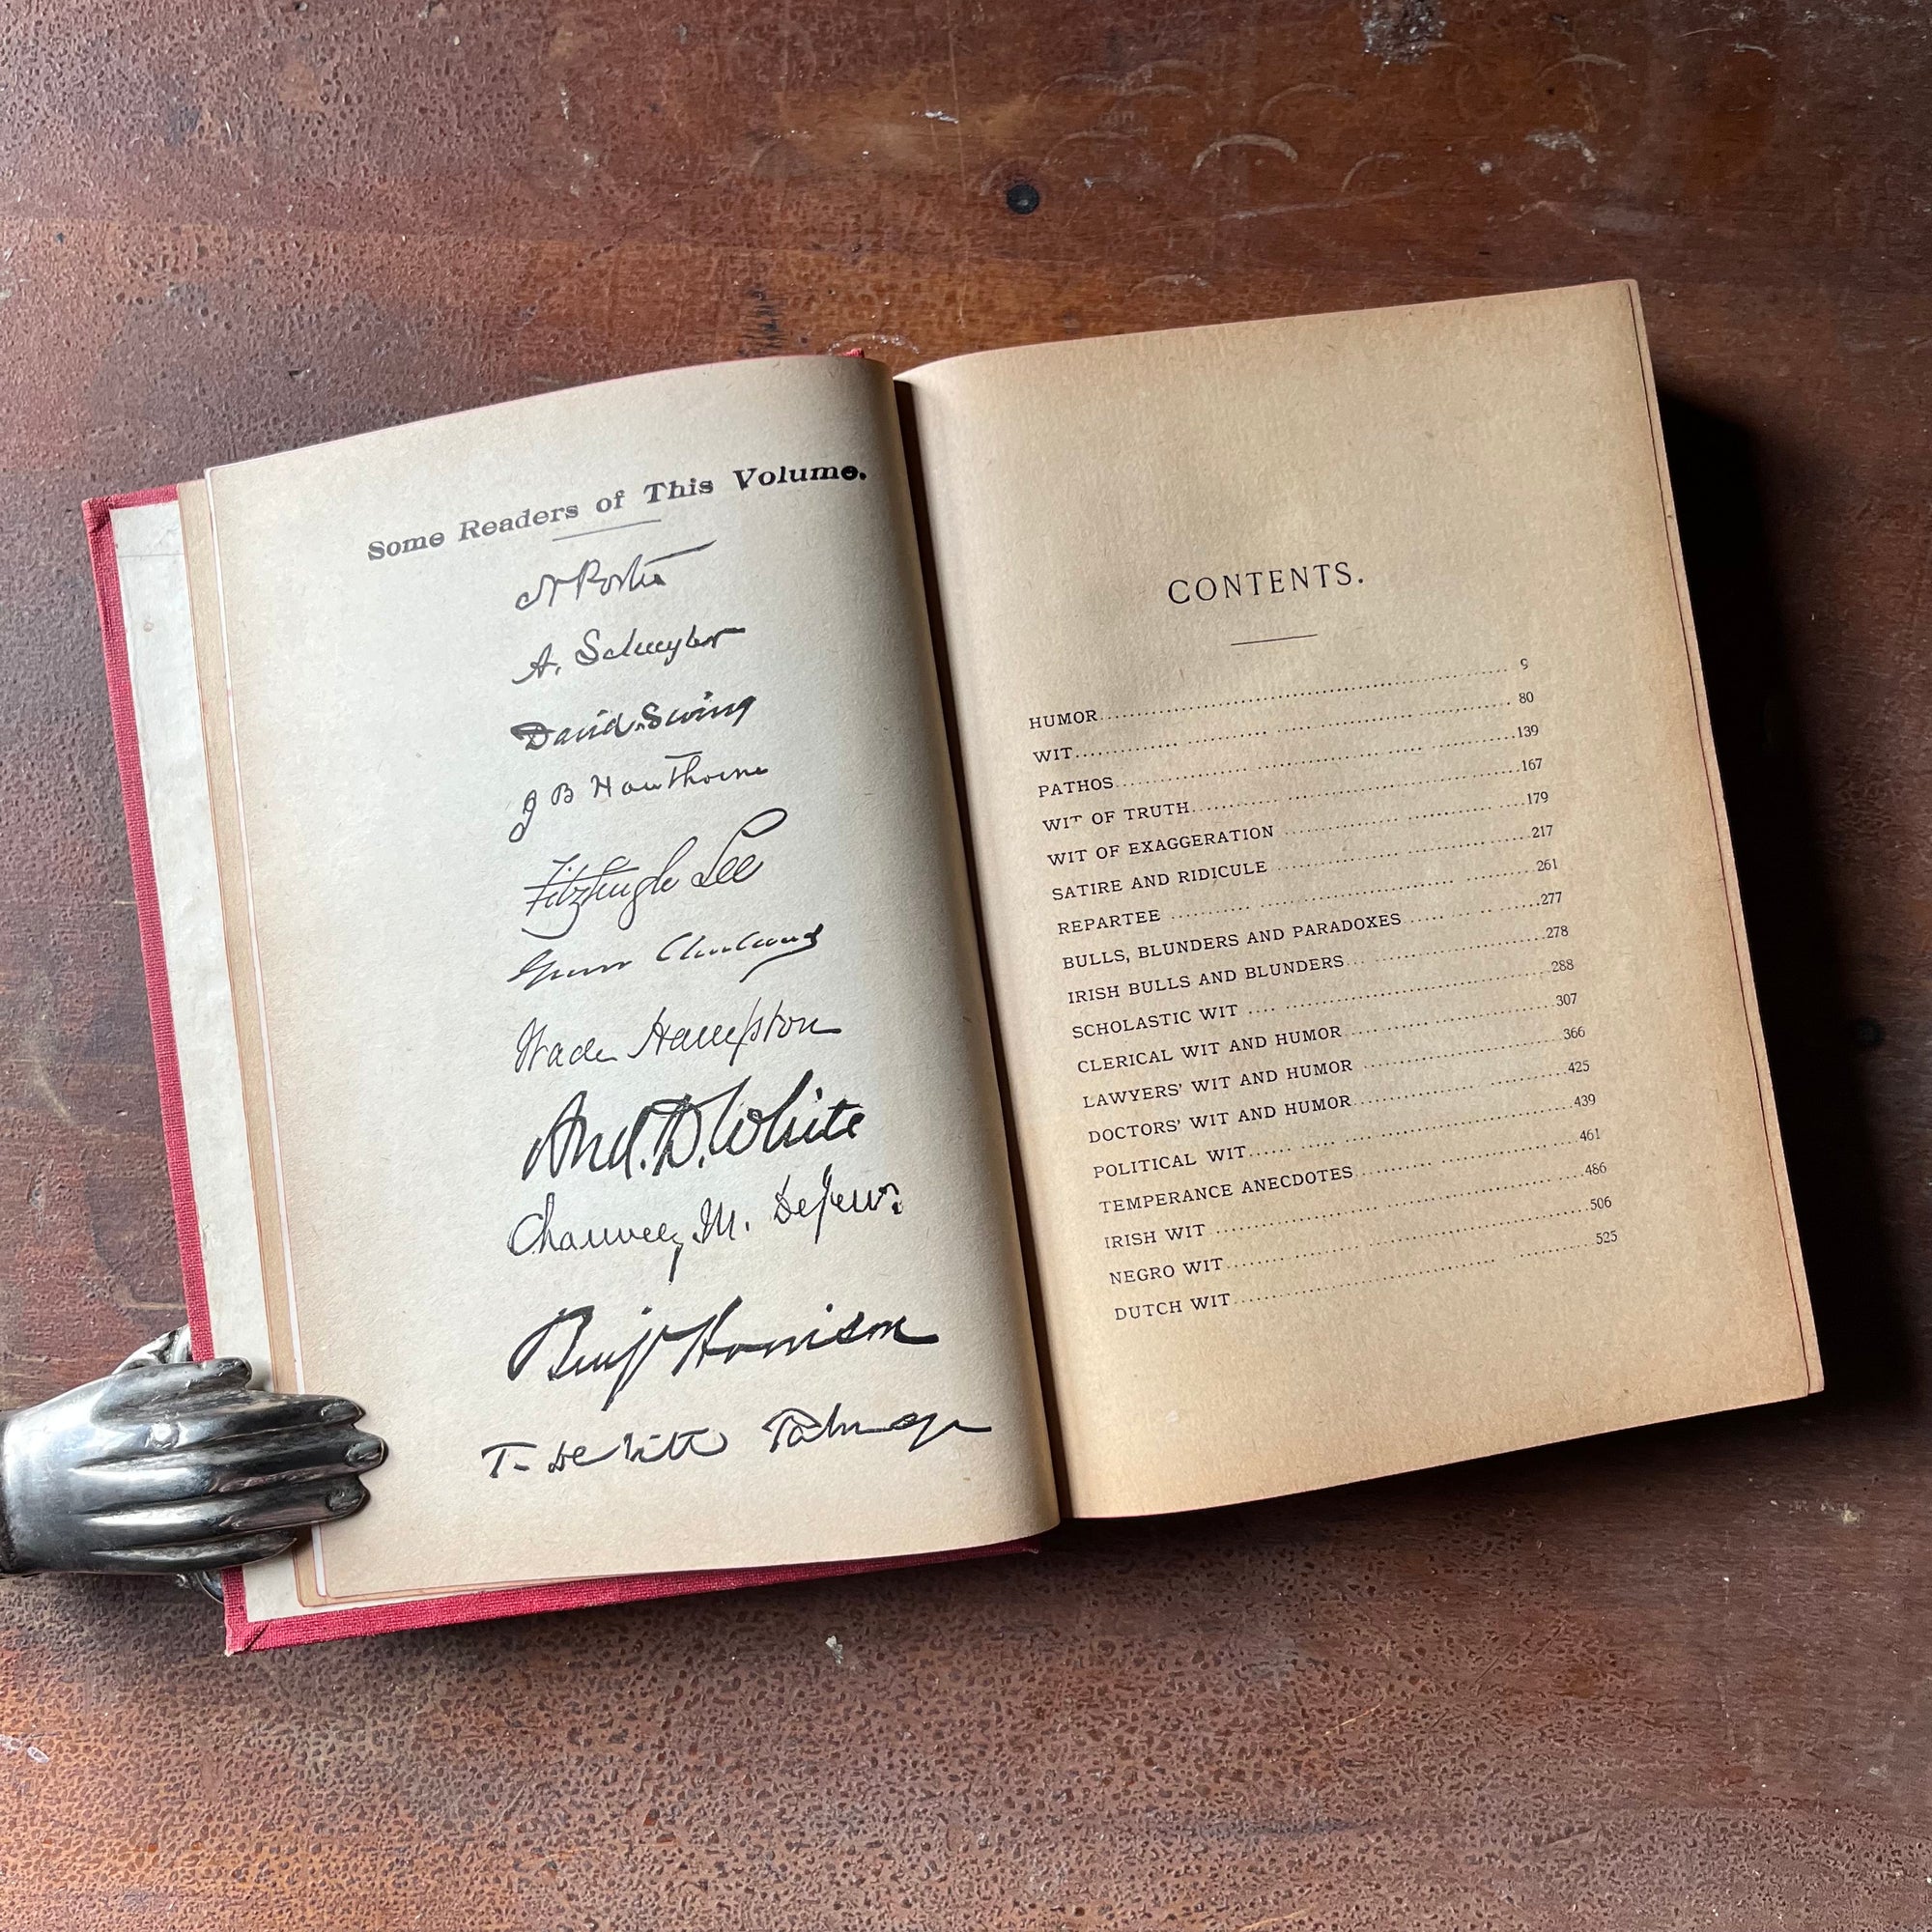 Some Readers of This Volume.
N Porter
A. Schuyler
David Swing
J B Hawthorne
Fitzhugh Lee
Wade Hampton
And. D. White
Chauncey M. Depew.
Benj Harrison
T. De Witt Talmage
CONTENTS.
HUMOR 9
WIT 80
PATHOS 139
WIT OF TRUTH 167
WIT OF EXAGGERATION 179
SATIRE AND RIDICULE 217
REPARTEE 261
BULLS, BLUNDERS AND PARADOXES 277
IRISH BULLS AND BLUNDERS 278
SCHOLASTIC WIT 288
CLERICAL WIT AND HUMOR 307
LAWYERS' WIT AND HUMOR 366
DOCTORS' WIT AND HUMOR 425
POLITICAL WIT 439
TEMPERANCE ANECDOTES 461
IRISH WIT 486
NEGRO WIT 506
DUTCH WIT 525